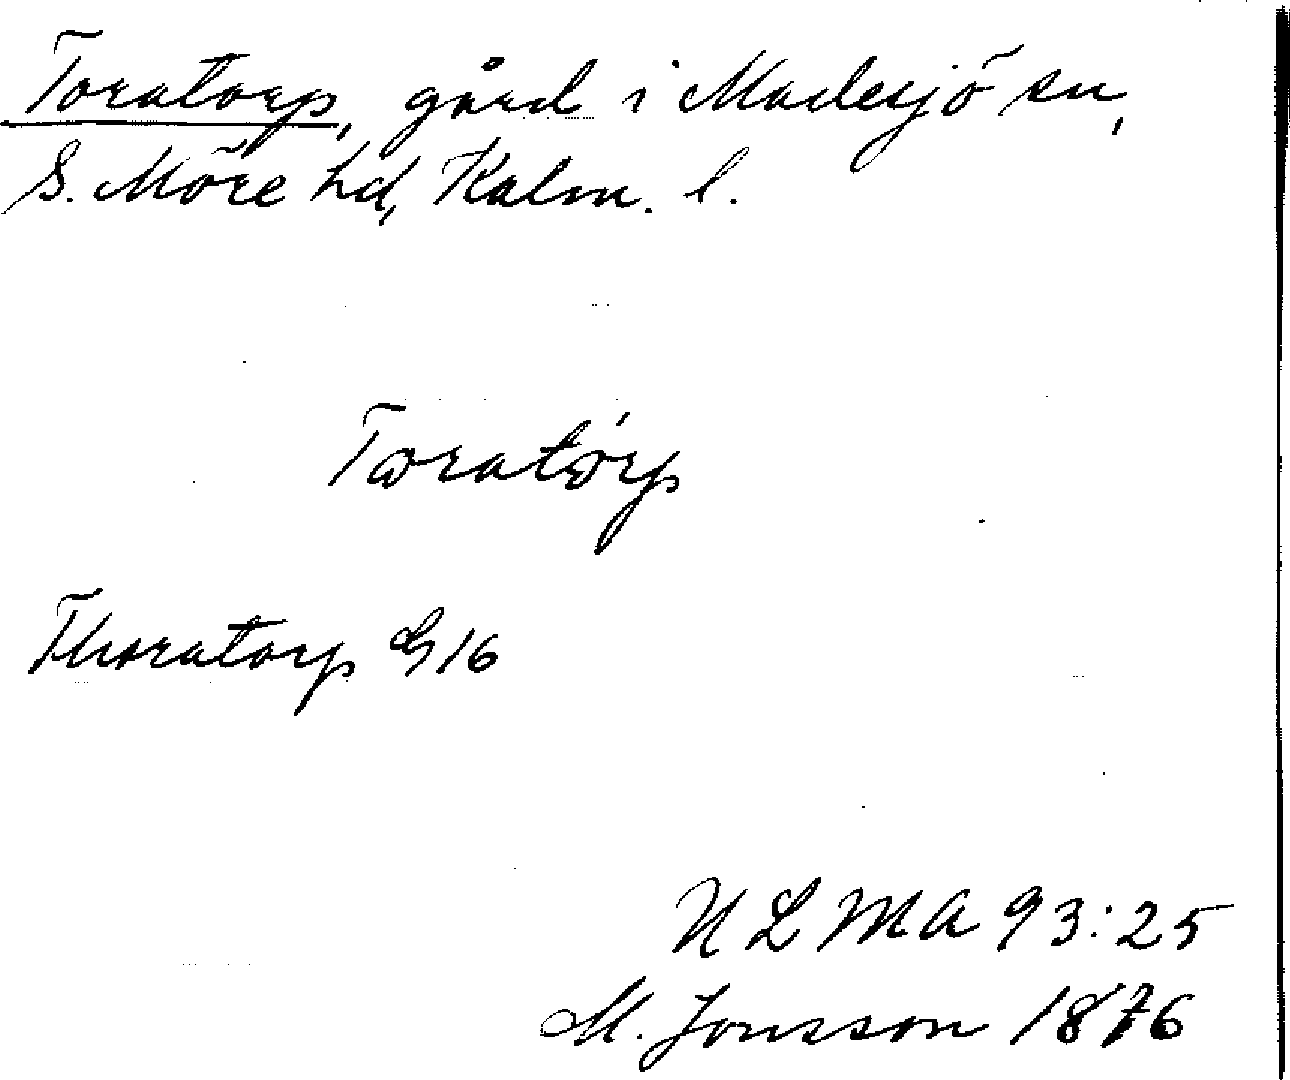 Toratorp, gård i Madesjö sn,
S. Möre hd, Kalm. l.
Toratorp
Thoratorp G 16
ULMA 93:25
M. Jonsson 1876